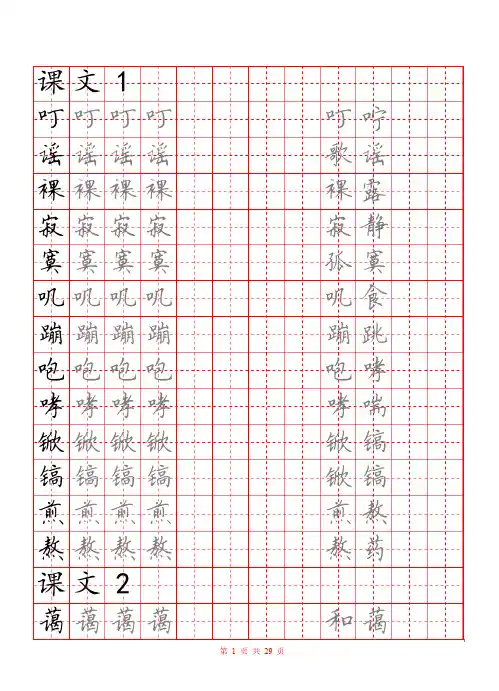 课文 1
叮叮叮叮 叮咛
谣谣谣谣 歌谣
裸裸裸裸 裸露
寂寂寂寂 寂静
寞寞寞寞 孤寞
叽叽叽叽 叽食
蹦蹦蹦蹦 蹦跳
咆咆咆咆 咆哮
哮哮哮哮 哮喘
锨锨锨锨 锨镐
镐镐镐镐 锨镐
煎煎煎煎 煎熬
熬熬熬熬 熬药
课文 2
蔼蔼蔼蔼 和蔼
第 1 页 共 29 页